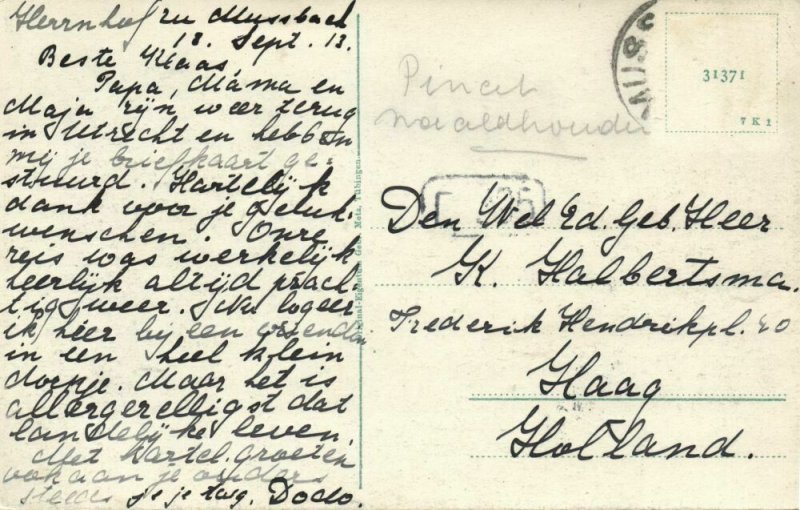 Herrnhof zu Mussbach
18. Sept. 12.
Beste Klaas,
Papa, Mama en
Maja zijn weer terug
in Utrecht en hebben
mij je briefkaart ge-
stuurd. Hartelijk
dank voor je geluk-
wenschen. Onze
reis was werkelijk
heerlijk altijd prach-
tig weer. Nu logeer
ik hier bij een vriendin
in een heel klein
dorpje. Maar het is
allergezelligst dat
landelijke leven.
Met hartel. groeten
ook aan je ouders
steeds je Dodo.
Metz, Tübingen.
naaldhouder
31371
7 K 1
Den Wel Ed. Geb. Heer
K. Halbertsma.
Frederik Hendrikpl. 20
Haag
Holland.